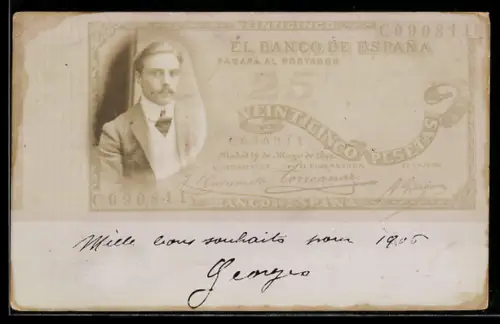 VEINTICINCO
C090811
EL BANCO DE ESPAÑA
PAGARÁ AL PORTADOR
25
VEINTICINCO PESETAS
C090811
Madrid 17 de Mayo de
C090811
BANCO DE ESPAÑA
Mille bons souhaits pour 1906
Georges